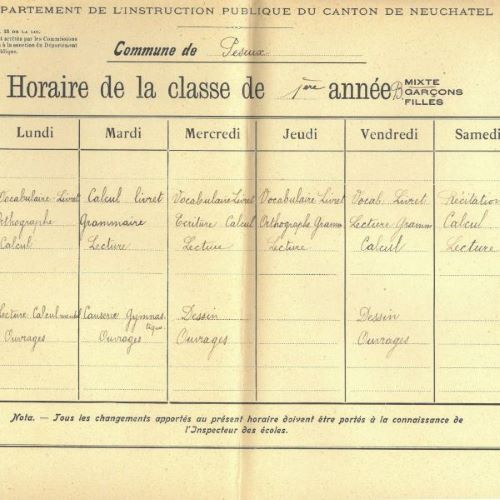 PARTEMENT DE L'INSTRUCTION PUBLIQUE DU CANTON DE NEUCHATEL
. 35 DE LA LOI.
t arrêtés par les Commissions
à la sanction du Département
blique.
Commune de Peseux
Horaire de la classe de 1ère année B. MIXTE GARÇONS FILLES
Lundi Mardi Mercredi Jeudi Vendredi Samedi
Vocabulaire-Livret Calcul livret Vocabulaire Livret Vocabulaire Livret Vocab. Livret Récitation
Orthographe Grammaire Ecriture Calcul Orthographe Gramm Lecture Gramm Calcul
Calcul Lecture Lecture Lecture Calcul Lecture
Lecture Calcul mental Causerie Gymnastique Dessin Dessin
Ouvrages Ouvrages Ouvrages Ouvrages
Nota. — Tous les changements apportés au présent horaire doivent être portés à la connaissance de
l'Inspecteur des écoles.